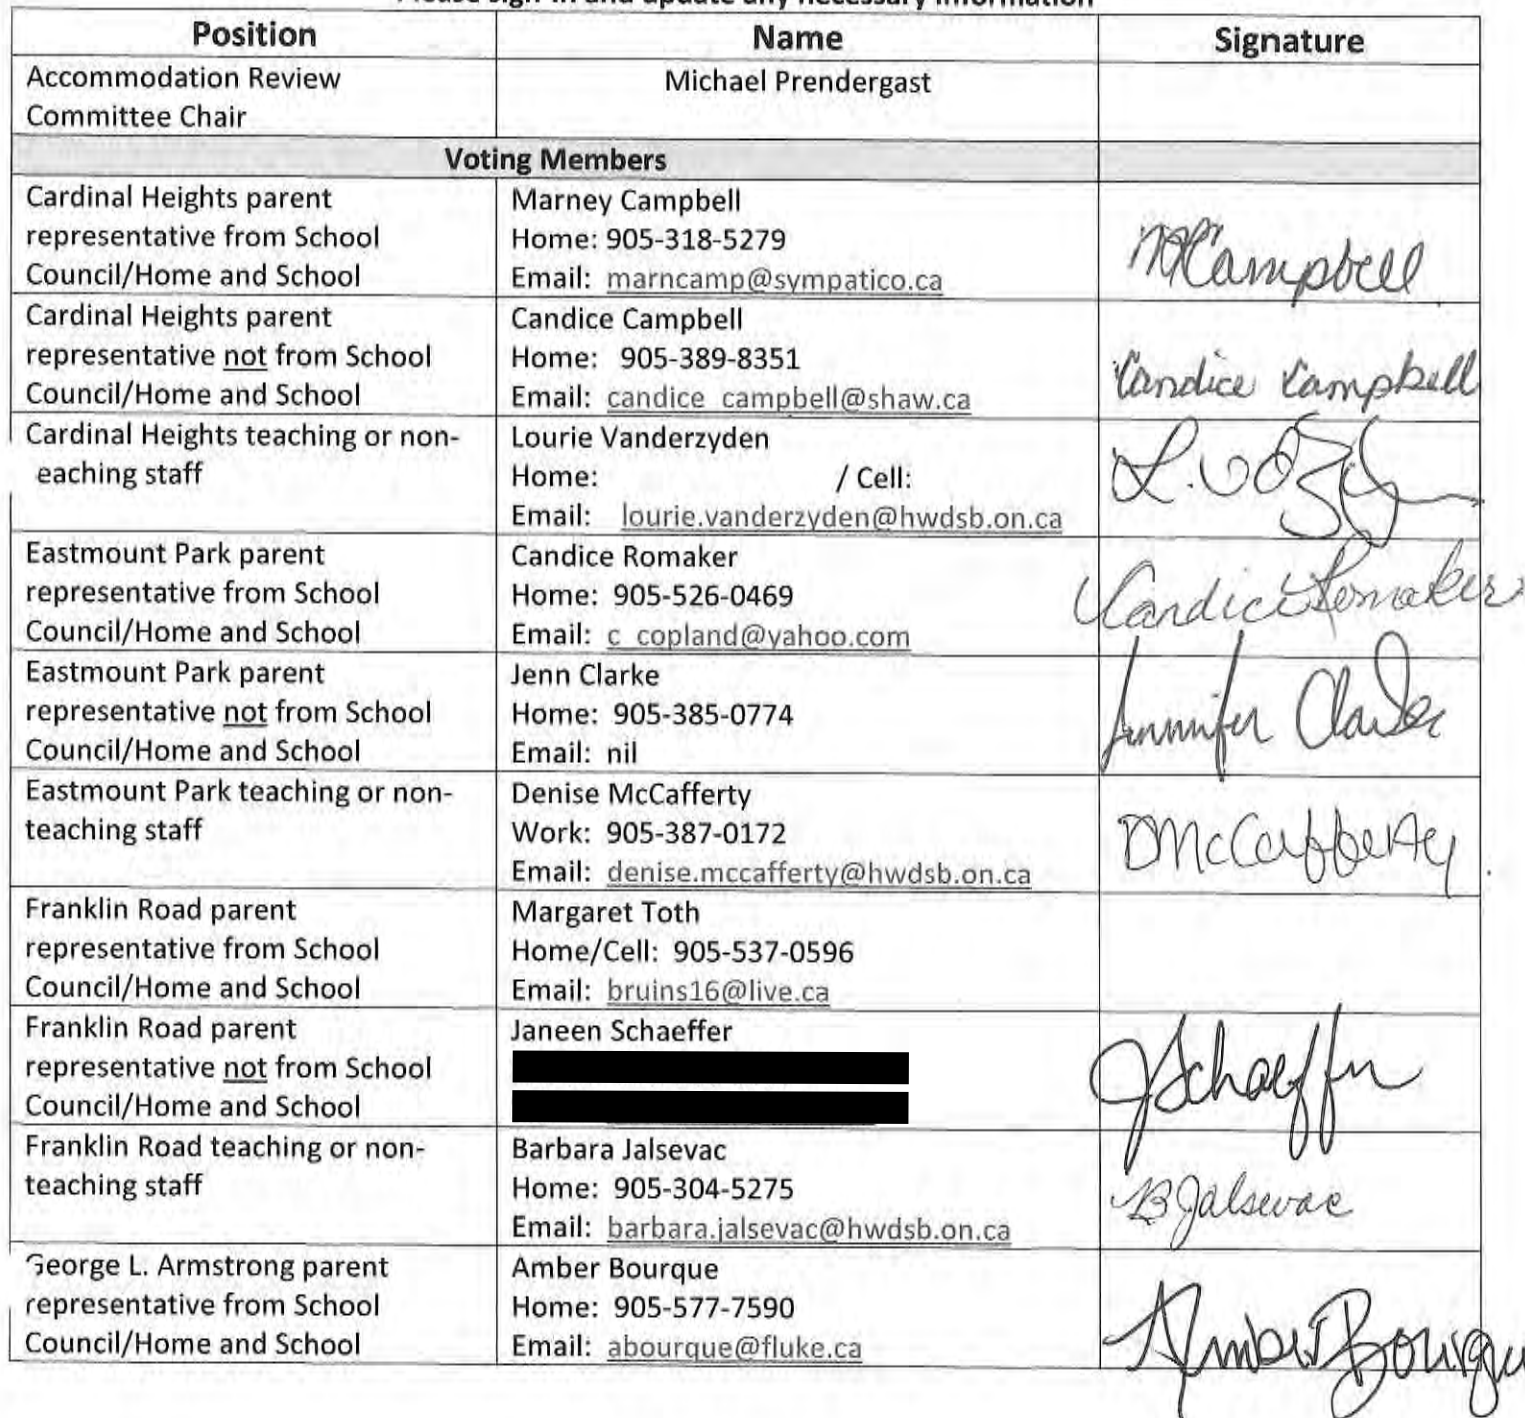 Please sign in and update any necessary information
Position Name Signature
Accommodation Review
Committee Chair
Michael Prendergast
Voting Members
Cardinal Heights parent
representative from School
Council/Home and School
Marney Campbell
Home: 905-318-5279
Email: marncamp@sympatico.ca
MCampbell
Cardinal Heights parent
representative not from School
Council/Home and School
Candice Campbell
Home: 905-389-8351
Email: candice_campbell@shaw.ca
Candice Campbell
Cardinal Heights teaching or non-
eaching staff
Lourie Vanderzyden
Home: / Cell:
Email: lourie.vanderzyden@hwdsb.on.ca
Eastmount Park parent
representative from School
Council/Home and School
Candice Romaker
Home: 905-526-0469
Email: c_copland@yahoo.com
Candice Romaker
Eastmount Park parent
representative not from School
Council/Home and School
Jenn Clarke
Home: 905-385-0774
Email: nil
Jennifer Clarke
Eastmount Park teaching or non-
teaching staff
Denise McCafferty
Work: 905-387-0172
Email: denise.mccafferty@hwdsb.on.ca
DMcCafferty
Franklin Road parent
representative from School
Council/Home and School
Margaret Toth
Home/Cell: 905-537-0596
Email: bruins16@live.ca
Franklin Road parent
representative not from School
Council/Home and School
Janeen Schaeffer
JSchaeffer
Franklin Road teaching or non-
teaching staff
Barbara Jalsevac
Home: 905-304-5275
Email: barbara.jalsevac@hwdsb.on.ca
B Jalsevac
George L. Armstrong parent
representative from School
Council/Home and School
Amber Bourque
Home: 905-577-7590
Email: abourque@fluke.ca
Amber Bourqu